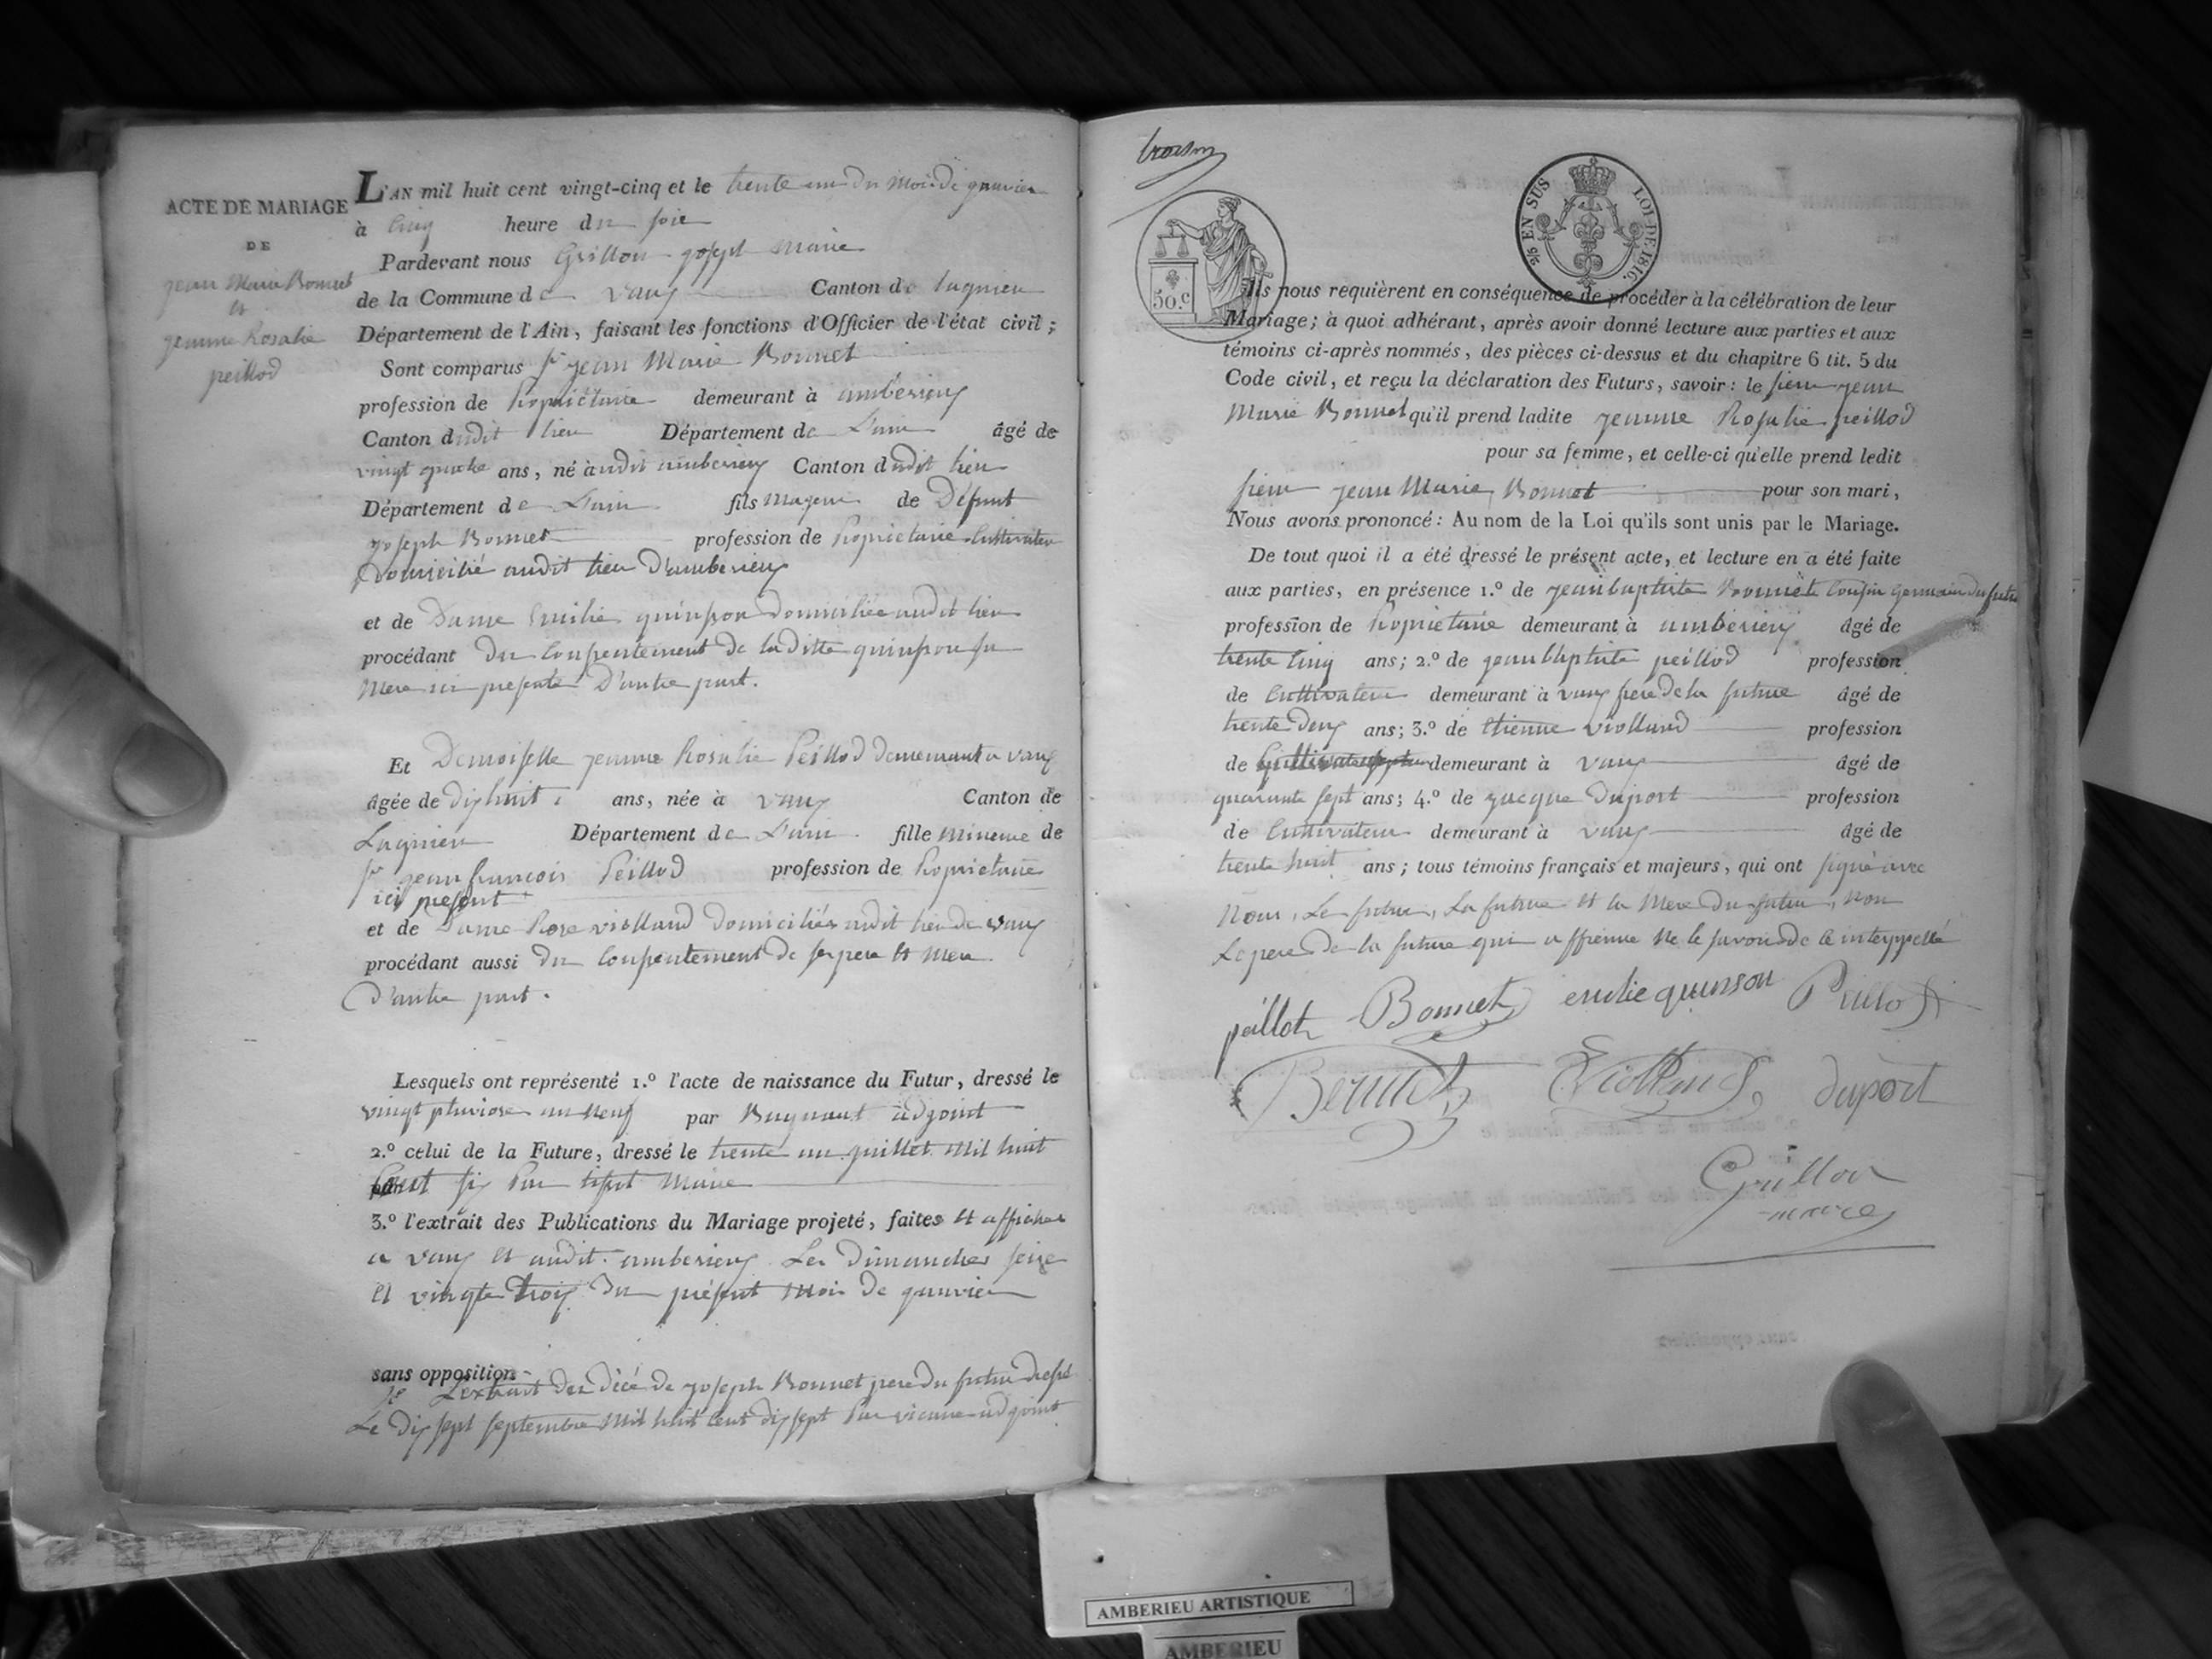 ACTE DE MARIAGE
DE
jean Marie Bonnet
et
jeanne Rosalie
peillod
L'AN mil huit cent vingt-cinq et le trente un du mois de janvier
à cinq heure du soir
Pardevant nous Grillon joseph Maire
de la Commune de vaux Canton de lagnieu
Département de l'Ain, faisant les fonctions d'Officier de l'état civil ;
Sont comparus sr jean Marie Bonnet
profession de propriétaire demeurant à ambérieux
Canton dudit lieu Département de L'ain âgé de
vingt quatre ans, né audit amberieux Canton dudit lieu
Département de L'ain fils majeur de Défunt
joseph Bonnet profession de propriétaire Cultivateur
Domicilié audit lieu D'amberieux
et de Dame Emilie quinson Domiciliée audit lieu
procédant du Consentement de laditte quinson sa
Mere ici presente D'autre part.
Et Demoiselle jeanne Rosalie Peillod demeurant a vaux
âgée de dix huit ans, née à vaux Canton de
Lagnieu Département de L'ain fille mineure de
sr jean francois Peillod profession de propriétaire
ici present
et de Dame Rose violland domiciliés audit lieu de vaux
procédant aussi du Consentement de ses pere et Mere
D'autre part.
Lesquels ont représenté 1.º l'acte de naissance du Futur, dressé le
vingt pluviose an neuf par Bugnaut adjoint
2.º celui de la Future, dressé le trente un juillet mil huit
Cent six Par tissot Maire
3.º l'extrait des Publications du Mariage projeté, faites et affichés
a vaux et audit amberieux Les Dimanches seize
et vingt trois Du présent Mois de janvier
sans opposition
4º L'extrait du décé de joseph Bonnet pere du futur dressé
Le Dix sept septembre Mil huit Cent dix sept Par vicaire adjoint
trois
50.C
2/5 EN SUS LOI-DE-1816.
Ils nous requièrent en conséquence de procéder à la célébration de leur
Mariage ; à quoi adhérant, après avoir donné lecture aux parties et aux
témoins ci-après nommés, des pièces ci-dessus et du chapitre 6 tit. 5 du
Code civil, et reçu la déclaration des Futurs, savoir : le sieur jean
Marie Bonnet qu'il prend ladite jeanne Rosalie peillod
pour sa femme, et celle-ci qu'elle prend ledit
sieur jean Marie Bonnet pour son mari,
Nous avons prononcé : Au nom de la Loi qu'ils sont unis par le Mariage.
De tout quoi il a été dressé le présent acte, et lecture en a été faite
aux parties, en présence 1.º de jean baptiste Bonnet Cousin germain du futur
profession de propriétaire demeurant à ambérieux âgé de
trente Cinq ans ; 2.º de jean Baptiste peillod profession
de Cultivateur demeurant à vaux frere de la future âgé de
trente Deux ans ; 3.º de Etienne violland profession
de Cultivateur demeurant à vaux âgé de
quarante sept ans ; 4.º de jacque Duport profession
de Cultivateur demeurant à vaux âgé de
trente huit ans ; tous témoins français et majeurs, qui ont signé avec
Nous, Le futur, La future et la Mere du futur, Non
Le pere de la future qui a affirmé Ne le savoir de ce interppellé
peillot Bonnet emilie quinson Peillod
Bonnet Violland duport
Grillon
maire
AMBERIEU ARTISTIQUE
AMBERIEU